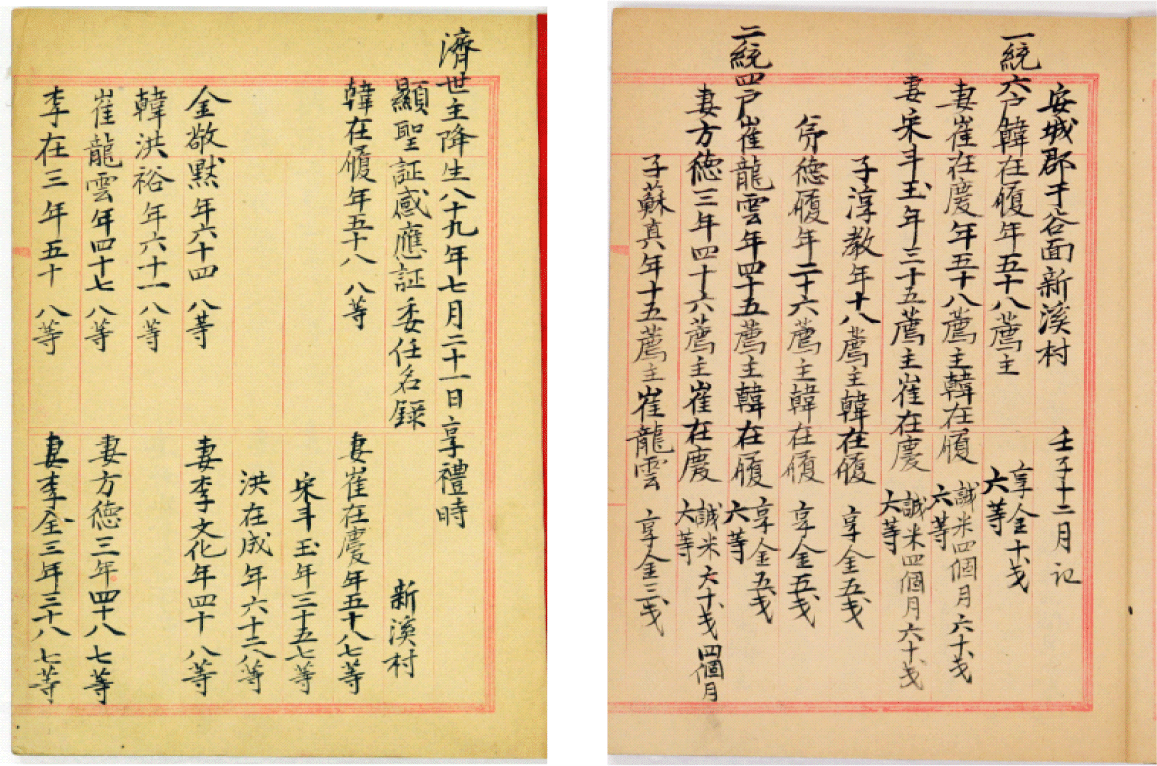 濟世主降生八十九年七月二十一日享禮時
顯聖証感應証委任名錄 新溪村
韓在履年五十八 八等 妻崔在慶年五十八七等
宋斗玉年三十五七等
洪在成年六十二八等
金敬默年六十四 八等 妻李文化年四十 八等
韓洪裕年六十一 八等
崔龍雲年四十七 八等 妻方德三年四十八 七等
李在三年五十 八等 妻李全三年三十八 七等
安城郡于谷面新溪村 壬子十二月記
一統六戶韓在履年五十八薦主 享金十戔 六等
妻崔在慶年五十八薦主韓在履 誠米四個月六十戔 六等
妻宋斗玉年三十五薦主崔在慶 誠米四個月六十戔 六等
子淳教年十八薦主韓在履 享金五戔
德履年二十六薦主韓在履 享金五戔
二統四戶崔龍雲年四十五薦主韓在履 享金五戔 六等
妻方德三年四十六薦主崔在慶 誠米六十戔四個月 六等
子蘇真年十五薦主崔龍雲 享金三戔